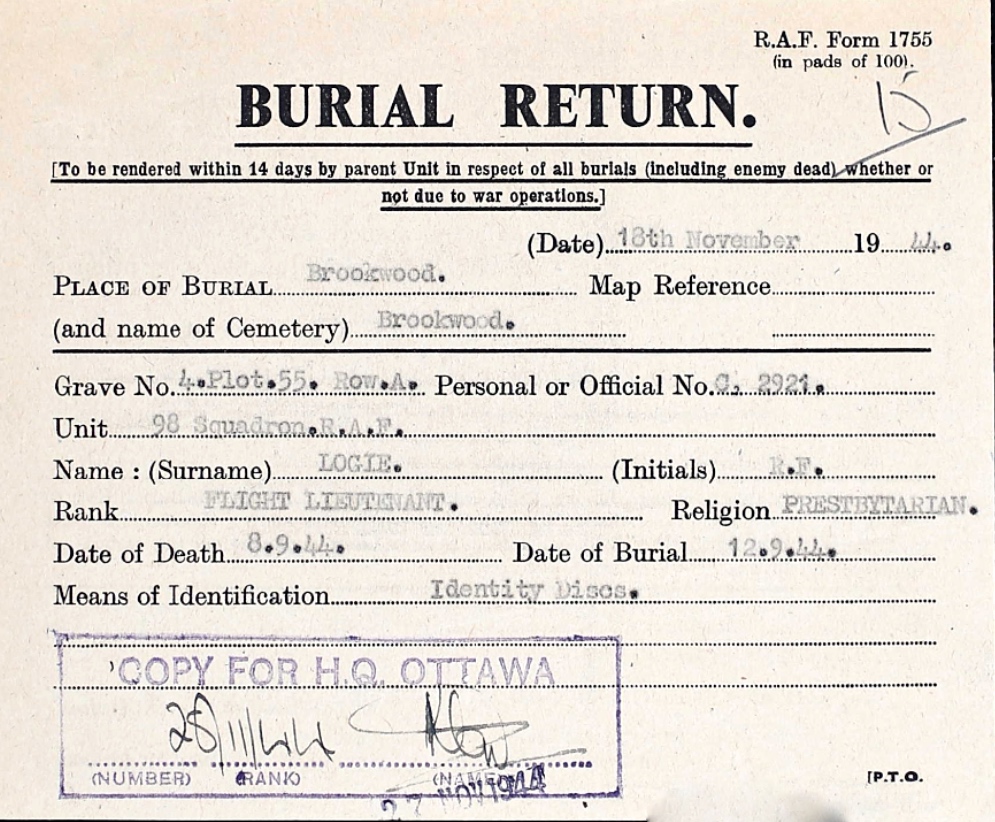 R.A.F. Form 1755
(in pads of 100).
15
BURIAL RETURN.
[To be rendered within 14 days by parent Unit in respect of all burials (including enemy dead) whether or
not due to war operations.]
(Date) 18th November 19 44.
PLACE OF BURIAL Brookwood. Map Reference
(and name of Cemetery) Brookwood.
Grave No. 4.Plot.55. Row.A. Personal or Official No. C. 2921.
Unit 98 Squadron.R.A.F.
Name : (Surname) LOGIE. (Initials) R.F.
Rank FLIGHT LIEUTENANT. Religion PRESBYTARIAN.
Date of Death 8.9.44. Date of Burial 12.9.44.
Means of Identification Identity Discs.
COPY FOR H.Q. OTTAWA
28/11/44
(NUMBER) (RANK) (NAME)
27 NOV 1944
[P.T.O.